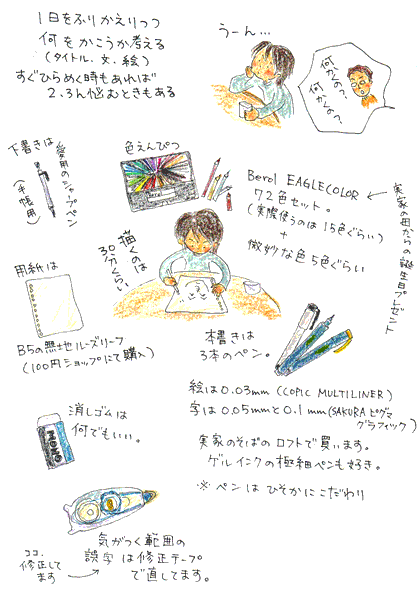 1日をふりかえりつつ
何をかこうか考える
(タイトル、文、絵)
すぐひらめく時もあれば
2、3ん悩むときもある
うーん…
何かくの?
何かくの?
下書きは
愛用のシャープペン
(手帳用)
色えんぴつ
Berol EAGLECOLOR
72色セット。
(実際使うのは15色ぐらい)
+
微妙な色5色ぐらい
実家の母からの誕生日プレゼント
描くのは
30分くらい
用紙は
B5の無地ルーズリーフ
(100円ショップにて購入)
本書きは
3本のペン。
絵は0.03mm (COPIC MULTILINER)
字は0.05mmと0.1mm(SAKURAピグマ
グラフィック)
実家のそばのロフトで買います。
ゲルインクの極細ペンも好き。
※ペンはひそかにこだわり
消しゴムは
何でもいい。
MONO
気がつく範囲の
誤字は修正テープ
で直してます。
ココ、
修正して
ます